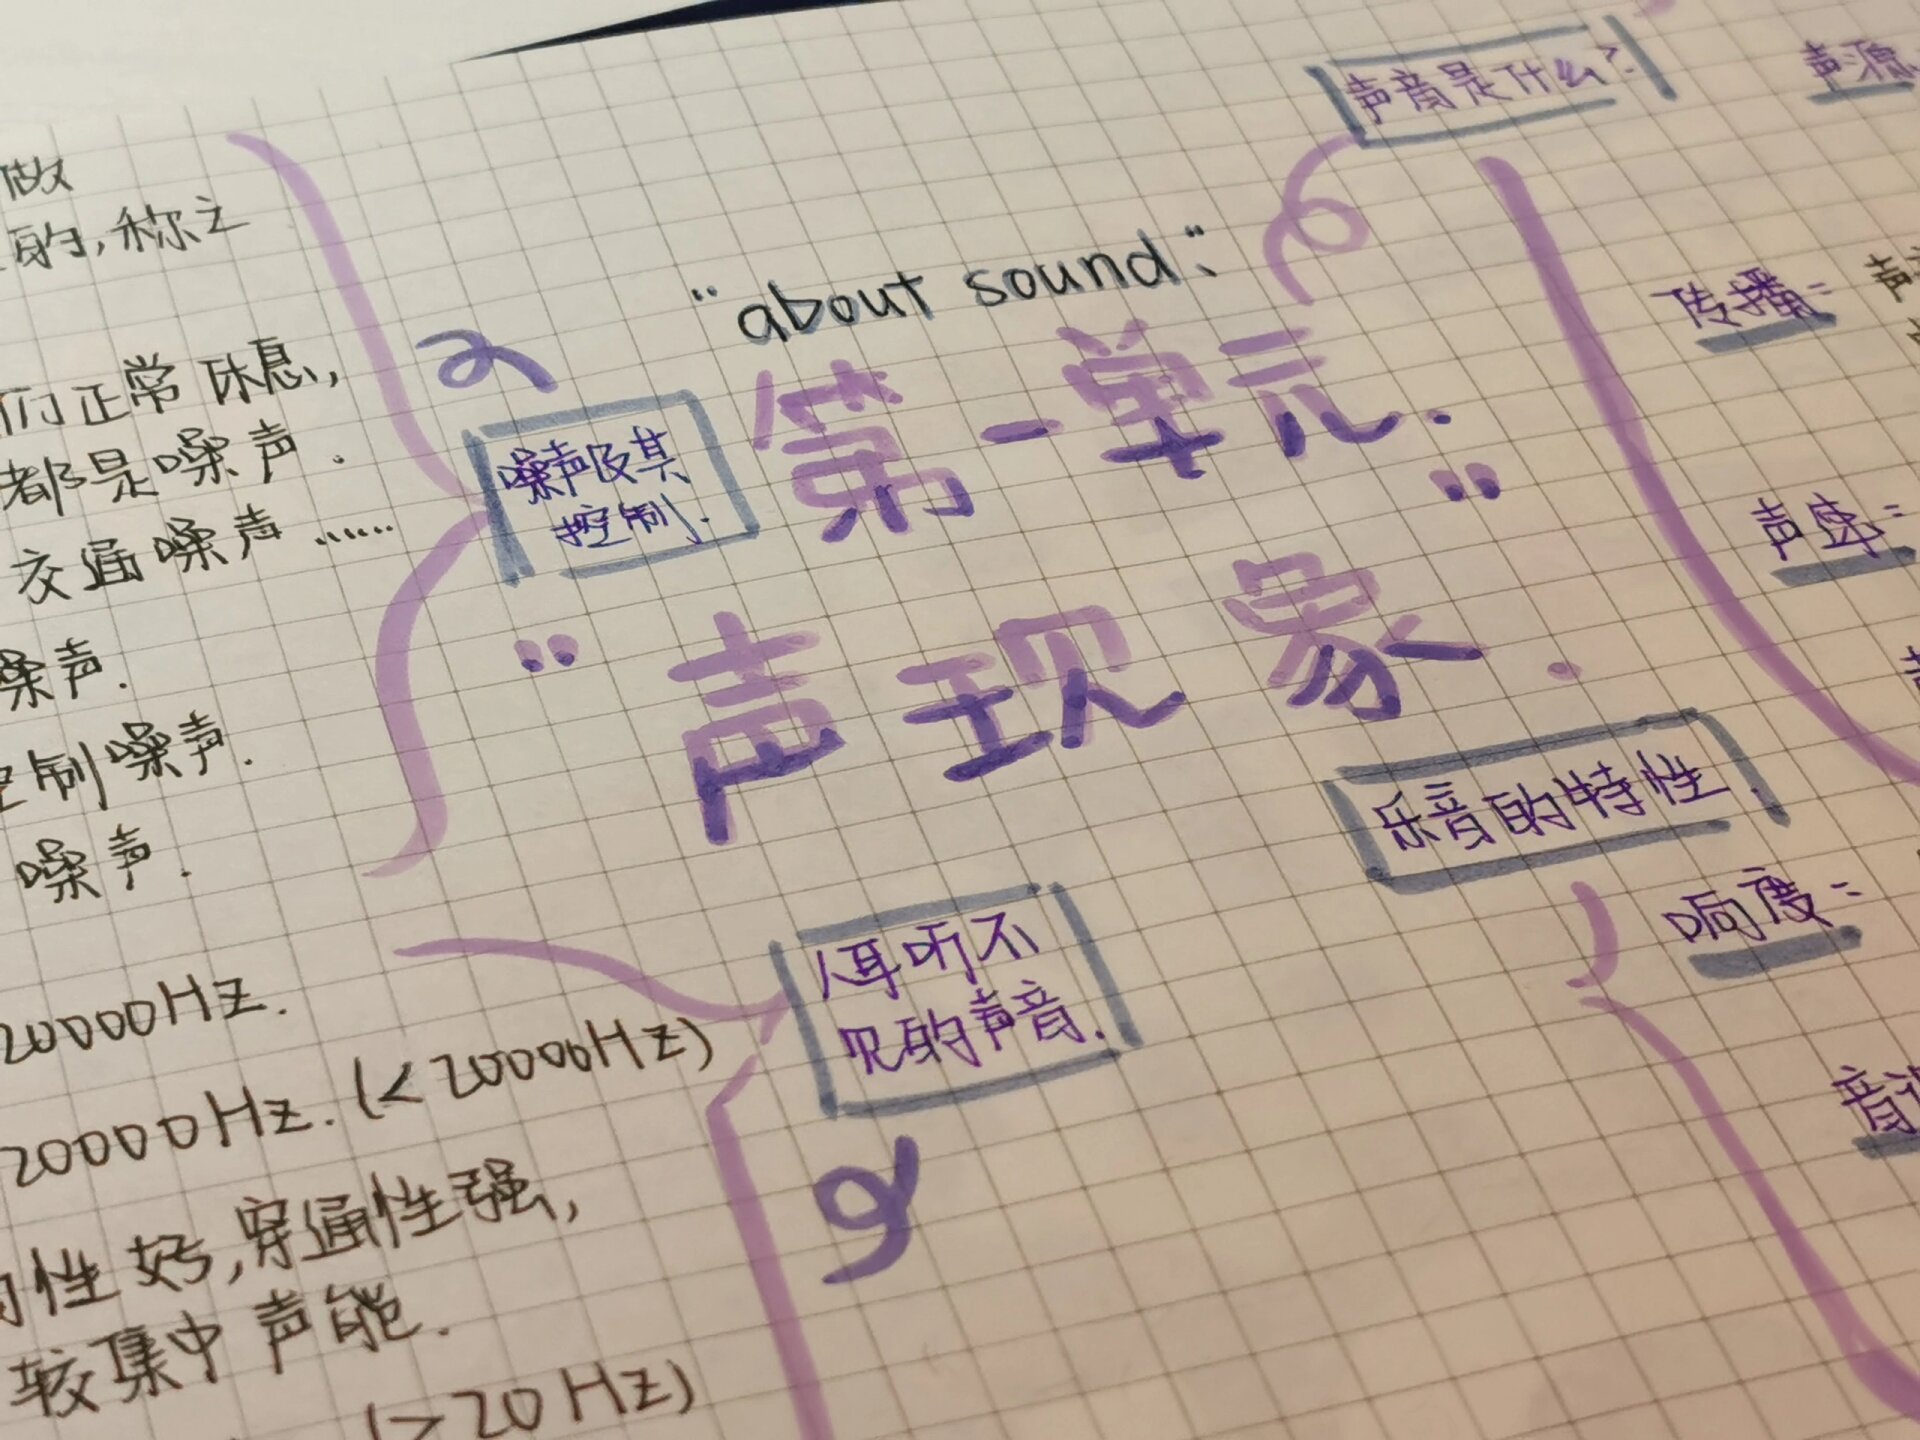 声音是什么?
声源
"about sound".
第一单元.
"声现象".
传播:
声速:
乐音的特性.
响度:
噪声及其
控制.
做
的,称之
们正常休息,
都是噪声.
交通噪声……
噪声.
控制噪声.
噪声.
人耳听不
见的声音.
20000Hz.
20000Hz.(<20000Hz)
性好,穿通性强,
较集中声能.
(>20Hz)